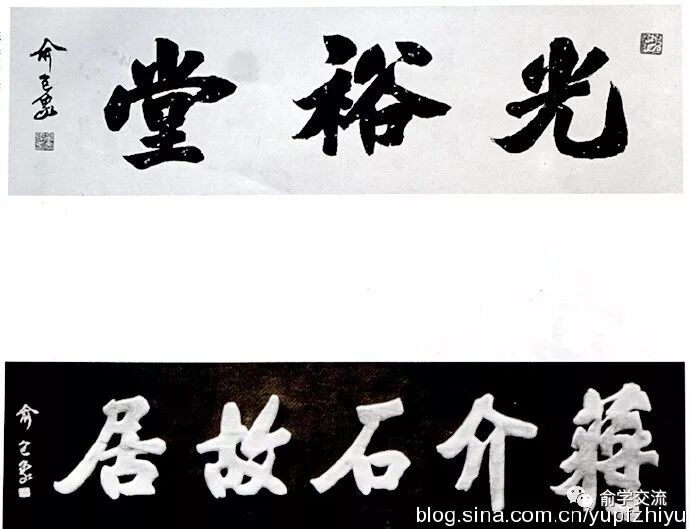 光裕堂
俞
蔣介石故居
俞
俞学交流
blog.sina.com.cn/yupfzhiyu